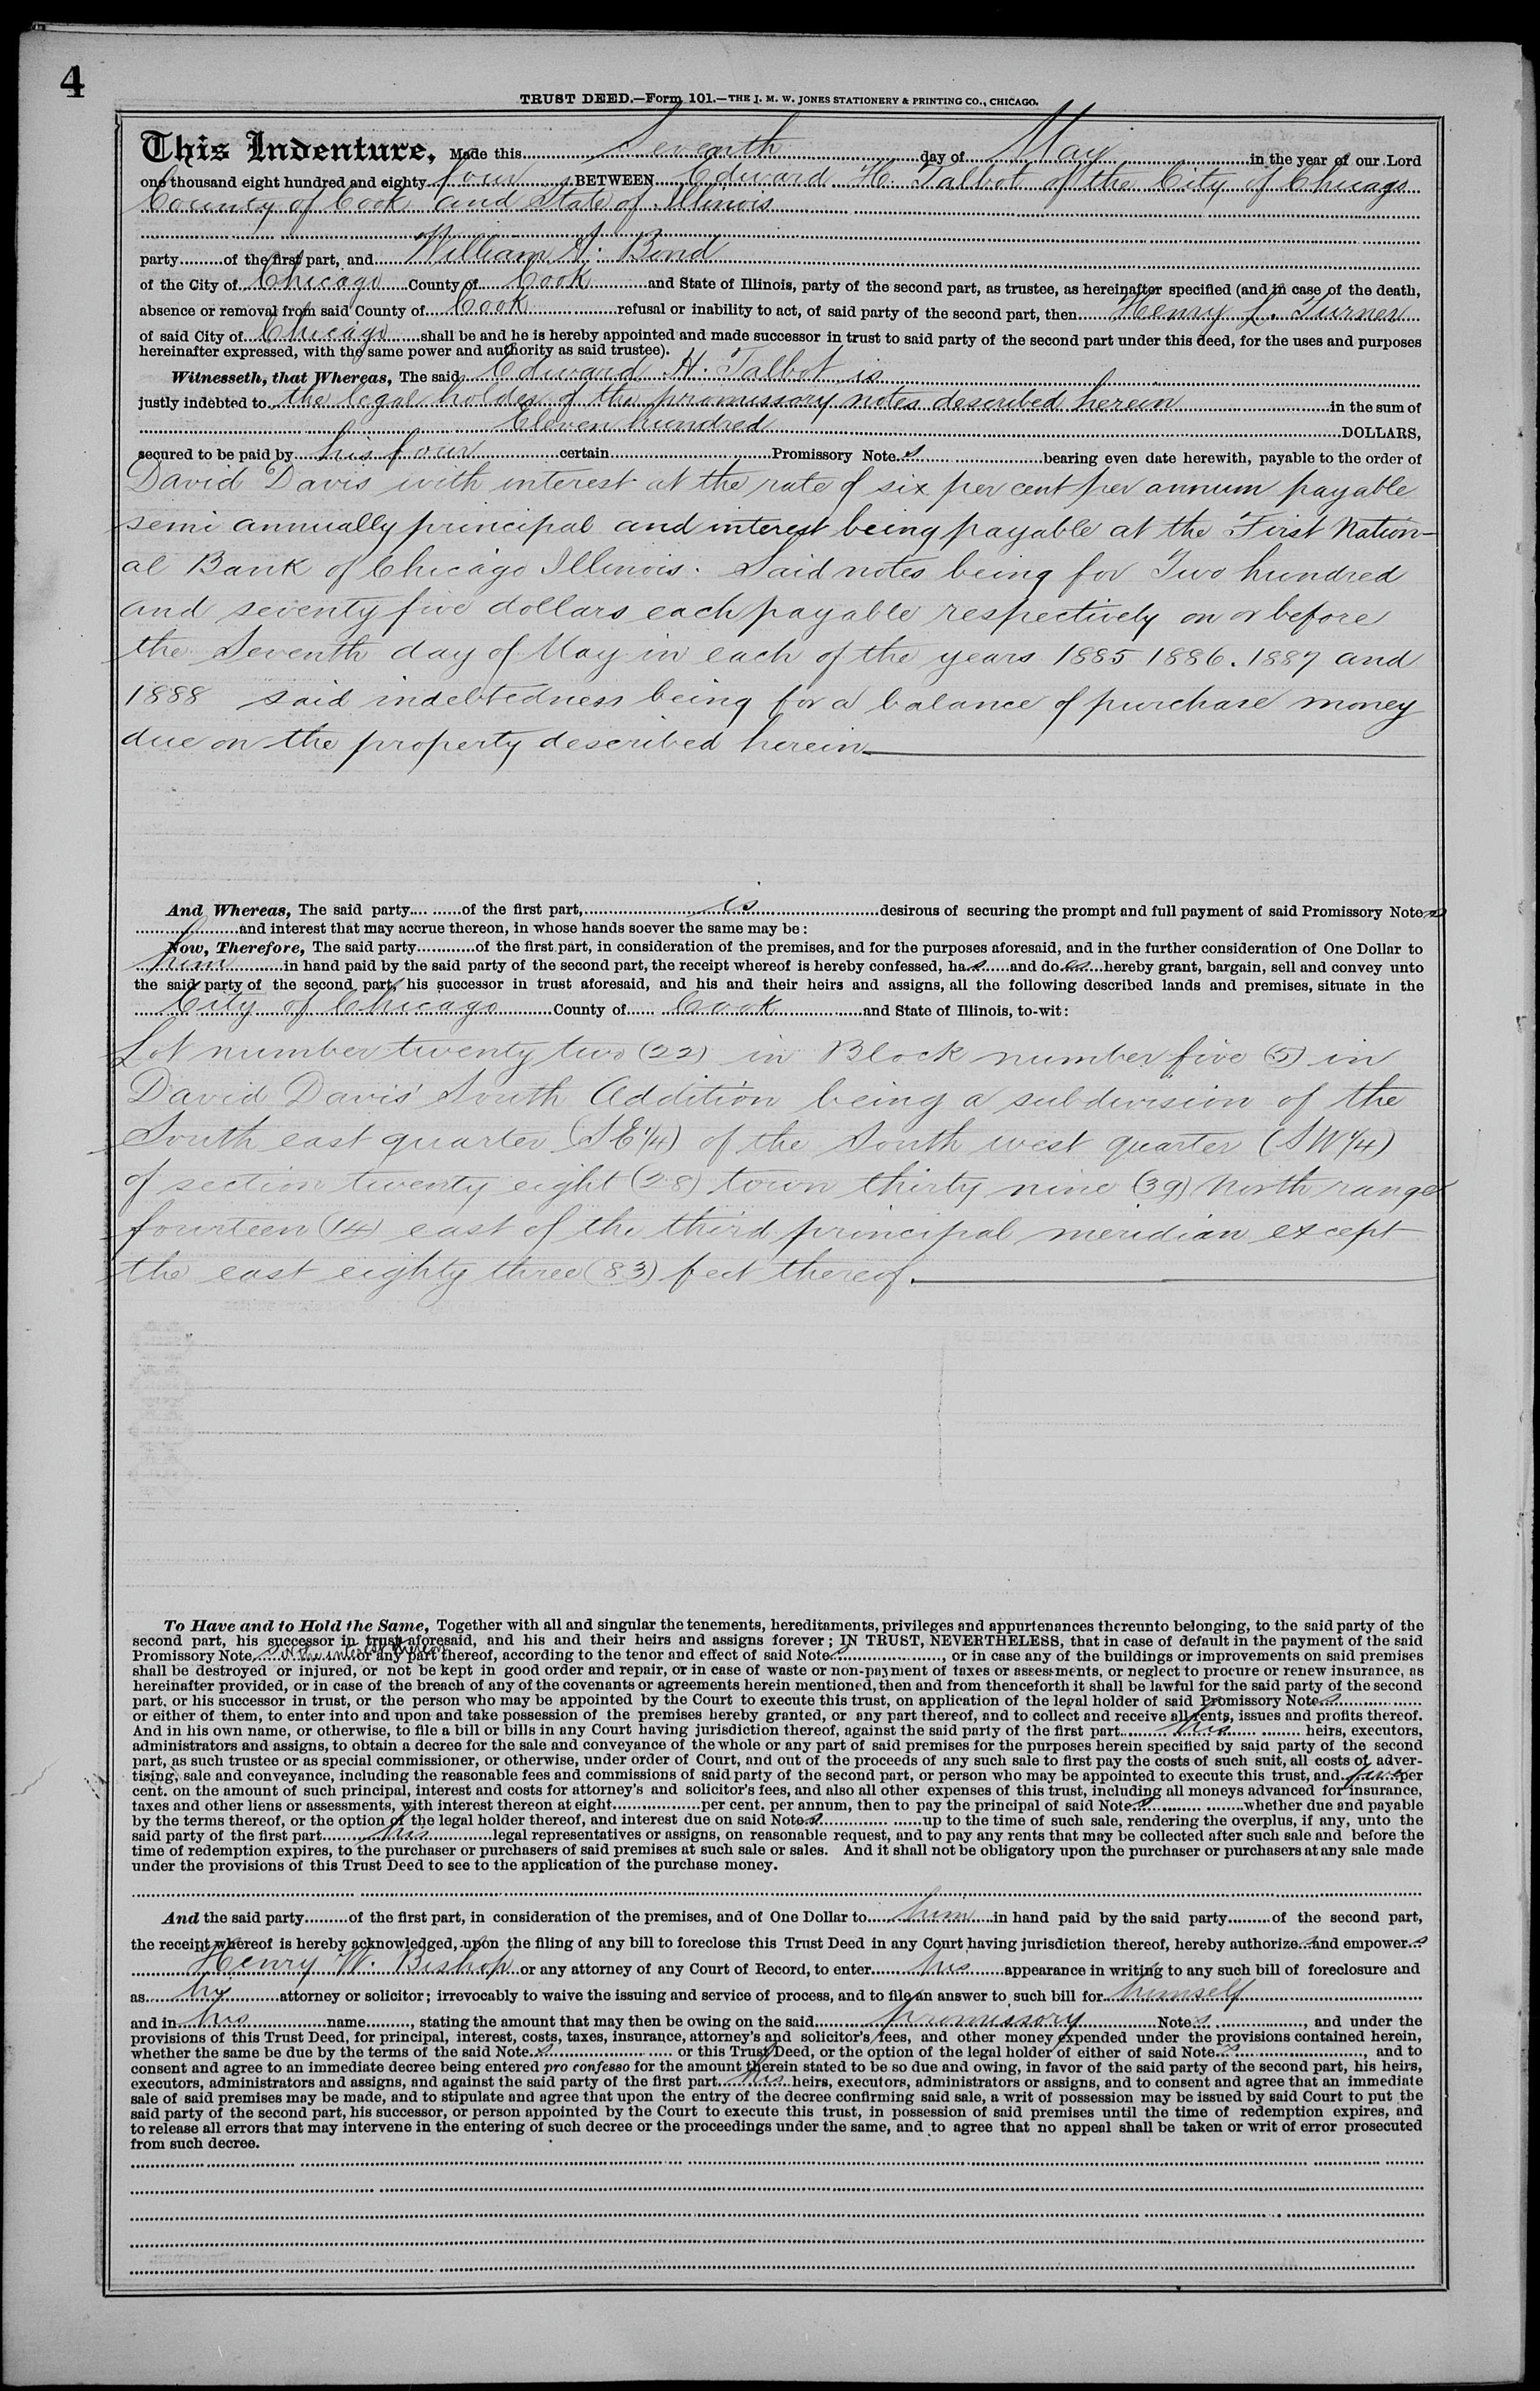 4
TRUST DEED.—Form 101.—THE J. M. W. JONES STATIONERY & PRINTING CO., CHICAGO.
This Indenture, Made this Seventh day of May in the year of our Lord
one thousand eight hundred and eighty four BETWEEN Edward H. Talbot of the City of Chicago
County of Cook and State of Illinois
party of the first part, and William A. Bond
of the City of Chicago County of Cook and State of Illinois, party of the second part, as trustee, as hereinafter specified (and in case of the death,
absence or removal from said County of Cook refusal or inability to act, of said party of the second part, then Henry L. Turner
of said City of Chicago shall be and he is hereby appointed and made successor in trust to said party of the second part under this deed, for the uses and purposes
hereinafter expressed, with the same power and authority as said trustee).
Witnesseth, that Whereas, The said Edward H. Talbot is
justly indebted to the legal holder of the promissory notes described herein in the sum of
Eleven hundred DOLLARS,
secured to be paid by his four certain Promissory Note s bearing even date herewith, payable to the order of
David Davis with interest at the rate of six per cent per annum payable
semi annually principal and interest being payable at the First Nation-
al Bank of Chicago Illinois. Said notes being for Two hundred
and seventy five dollars each payable respectively on or before
the Seventh day of May in each of the years 1885 1886. 1887 and
1888 said indebtedness being for a balance of purchase money
due on the property described herein
And Whereas, The said party of the first part, is desirous of securing the prompt and full payment of said Promissory Note s
and interest that may accrue thereon, in whose hands soever the same may be:
Now, Therefore, The said party of the first part, in consideration of the premises, and for the purposes aforesaid, and in the further consideration of One Dollar to
him in hand paid by the said party of the second part, the receipt whereof is hereby confessed, ha s and do es hereby grant, bargain, sell and convey unto
the said party of the second part, his successor in trust aforesaid, and his and their heirs and assigns, all the following described lands and premises, situate in the
City of Chicago County of Cook and State of Illinois, to-wit:
Lot number twenty two (22) in Block number five (5) in
David Davis' South Addition being a subdivision of the
South east quarter (S E 1/4) of the South west quarter (S W 1/4)
of section twenty eight (28) town thirty nine (39) North range
fourteen (14) east of the third principal meridian except
the east eighty three (83) feet thereof.
To Have and to Hold the Same, Together with all and singular the tenements, hereditaments, privileges and appurtenances thereunto belonging, to the said party of the
second part, his successor in trust aforesaid, and his and their heirs and assigns forever; IN TRUST, NEVERTHELESS, that in case of default in the payment of the said
Promissory Note s or the interest thereon or any part thereof, according to the tenor and effect of said Note s, or in case any of the buildings or improvements on said premises
shall be destroyed or injured, or not be kept in good order and repair, or in case of waste or non-payment of taxes or assessments, or neglect to procure or renew insurance, as
hereinafter provided, or in case of the breach of any of the covenants or agreements herein mentioned, then and from thenceforth it shall be lawful for the said party of the second
part, or his successor in trust, or the person who may be appointed by the Court to execute this trust, on application of the legal holder of said Promissory Note s
or either of them, to enter into and upon and take possession of the premises hereby granted, or any part thereof, and to collect and receive all rents, issues and profits thereof.
And in his own name, or otherwise, to file a bill or bills in any Court having jurisdiction thereof, against the said party of the first part his heirs, executors,
administrators and assigns, to obtain a decree for the sale and conveyance of the whole or any part of said premises for the purposes herein specified by said party of the second
part, as such trustee or as special commissioner, or otherwise, under order of Court, and out of the proceeds of any such sale to first pay the costs of such suit, all costs of adver-
tising, sale and conveyance, including the reasonable fees and commissions of said party of the second part, or person who may be appointed to execute this trust, and five per
cent. on the amount of such principal, interest and costs for attorney's and solicitor's fees, and also all other expenses of this trust, including all moneys advanced for insurance,
taxes and other liens or assessments, with interest thereon at eight per cent. per annum, then to pay the principal of said Note s whether due and payable
by the terms thereof, or the option of the legal holder thereof, and interest due on said Note s up to the time of such sale, rendering the overplus, if any, unto the
said party of the first part his legal representatives or assigns, on reasonable request, and to pay any rents that may be collected after such sale and before the
time of redemption expires, to the purchaser or purchasers of said premises at such sale or sales. And it shall not be obligatory upon the purchaser or purchasers at any sale made
under the provisions of this Trust Deed to see to the application of the purchase money.
And the said party of the first part, in consideration of the premises, and of One Dollar to him in hand paid by the said party of the second part,
the receipt whereof is hereby acknowledged, upon the filing of any bill to foreclose this Trust Deed in any Court having jurisdiction thereof, hereby authorize s and empower s
Henry W. Bishop or any attorney of any Court of Record, to enter his appearance in writing to any such bill of foreclosure and
as my attorney or solicitor; irrevocably to waive the issuing and service of process, and to file an answer to such bill for himself
and in his name, stating the amount that may then be owing on the said promissory Note s, and under the
provisions of this Trust Deed, for principal, interest, costs, taxes, insurance, attorney's and solicitor's fees, and other money expended under the provisions contained herein,
whether the same be due by the terms of the said Note s or this Trust Deed, or the option of the legal holder of either of said Note s, and to
consent and agree to an immediate decree being entered pro confesso for the amount therein stated to be so due and owing, in favor of the said party of the second part, his heirs,
executors, administrators and assigns, and against the said party of the first part his heirs, executors, administrators or assigns, and to consent and agree that an immediate
sale of said premises may be made, and to stipulate and agree that upon the entry of the decree confirming said sale, a writ of possession may be issued by said Court to put the
said party of the second part, his successor, or person appointed by the Court to execute this trust, in possession of said premises until the time of redemption expires, and
to release all errors that may intervene in the entering of such decree or the proceedings under the same, and to agree that no appeal shall be taken or writ of error prosecuted
from such decree.